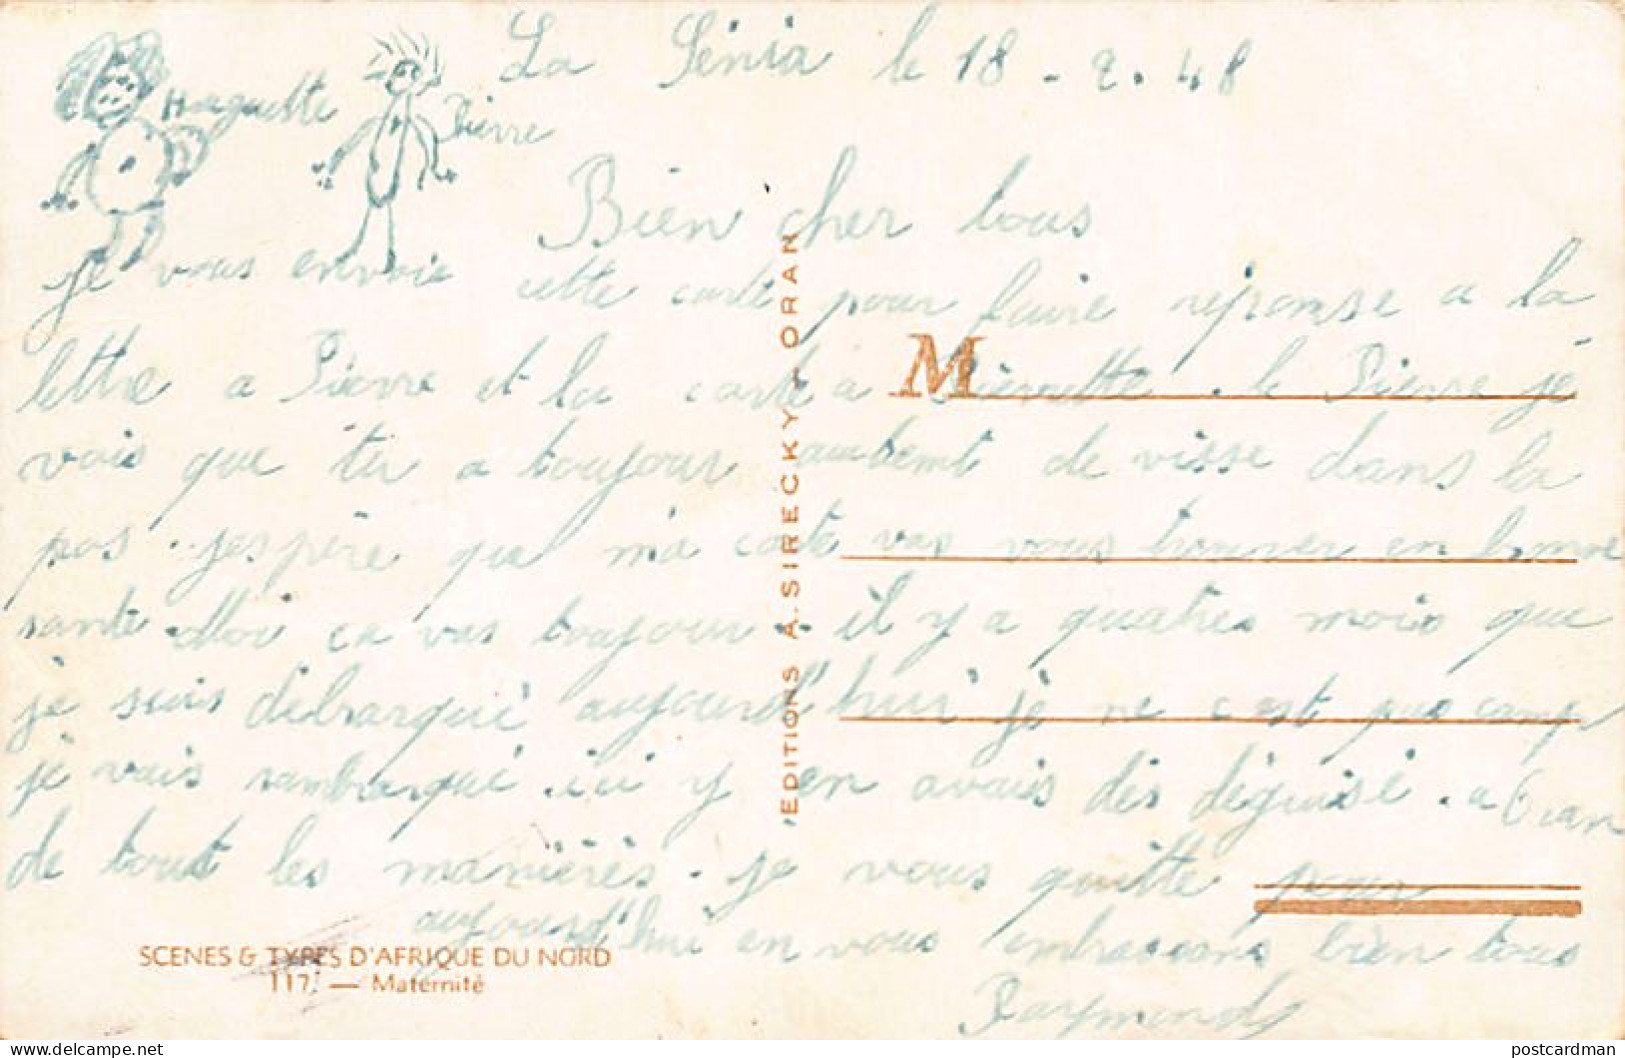 La Sénia le 18 - 2 . 48
Huguette Pierre
Bien cher tous
je vous envoie cette carte pour faire réponse a la
lettre a Pierre et la carte a Pierrette . le Pierre je
vois que tu a toujour autemt de visse dans la
pos . jespère que ma carte vas vous trouver en bonne
santé . Moi ca vas toujour . il y a quatres mois que
je suis débarqué aujourd'hui je ne c est pas camp
je vais rambarqué . ici y en avais des déguisé . a Oran
de tout les manières . je vous quitte pour
aujourd'hui en vous embrassans bien tous
Raymond
M
EDITIONS A. SIRECKY - ORAN
SCENES & TYPES D'AFRIQUE DU NORD
117. — Maternité
postcardman